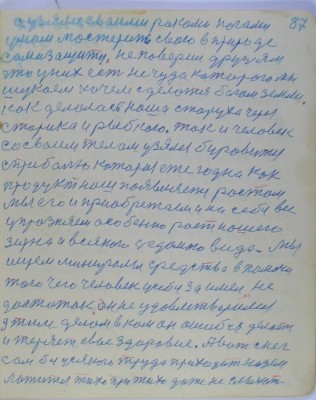 87
своими руками ногами
умом мостерить свою в природе
самозащиту, не поверил друзьям
что у них есть не чуда которого мы
шукаем хочем сделатся богом земли.
как делалась наша старуха через
старика и рыбкою. так и человек
со своим телом взялся
которая ежегодно как
продукт наш появляется ростом
мы его и приобретаем и на себя все
особенно рост нашего
зерна и всякого съедомго вида. Мы
ищем минералы средства в помочи
того чего человек у себя заимел не
достоток. он не удовлетворился
этим делом в ком он ошибся делать
и теряет свое здоровие. А вот снег
сам без усякого труда приходит на землю
ложится тихо при тихо даже не слыхать.